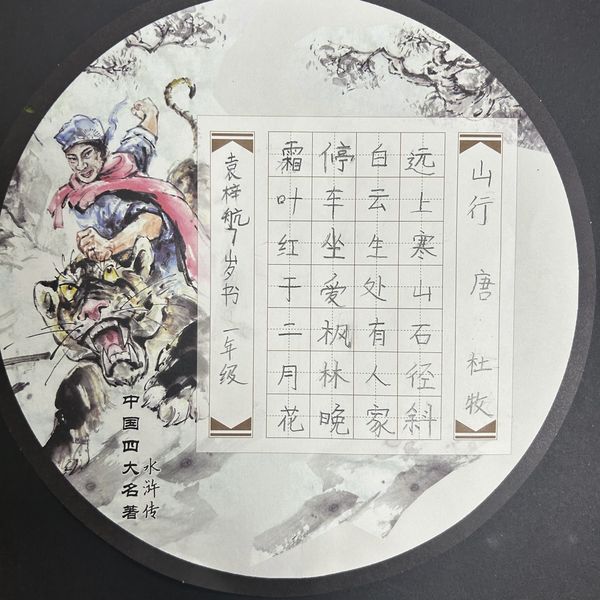 山行 唐 杜牧
远上寒山石径斜
白云生处有人家
停车坐爱枫林晚
霜叶红于二月花
袁梓航7岁书 一年级
中国四大名著
水浒传